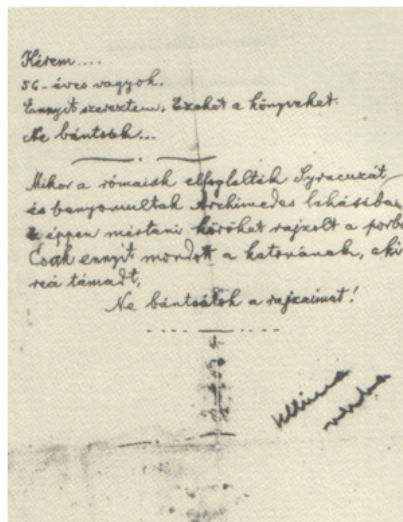 Kérem....
56-éves vagyok.
Ennyit szereztem. Ezeket a könyveket.
Ne bántsák...
Mikor a rómaiak elfoglalták Syracuzát
és benyomultak Archimedes lakásába,
éppen mértani köröket rajzolt a porba
Csak ennyit mondott a katonának, aki
reá támadt,
Ne bántsátok a rajzaimat!
Ultima
verba